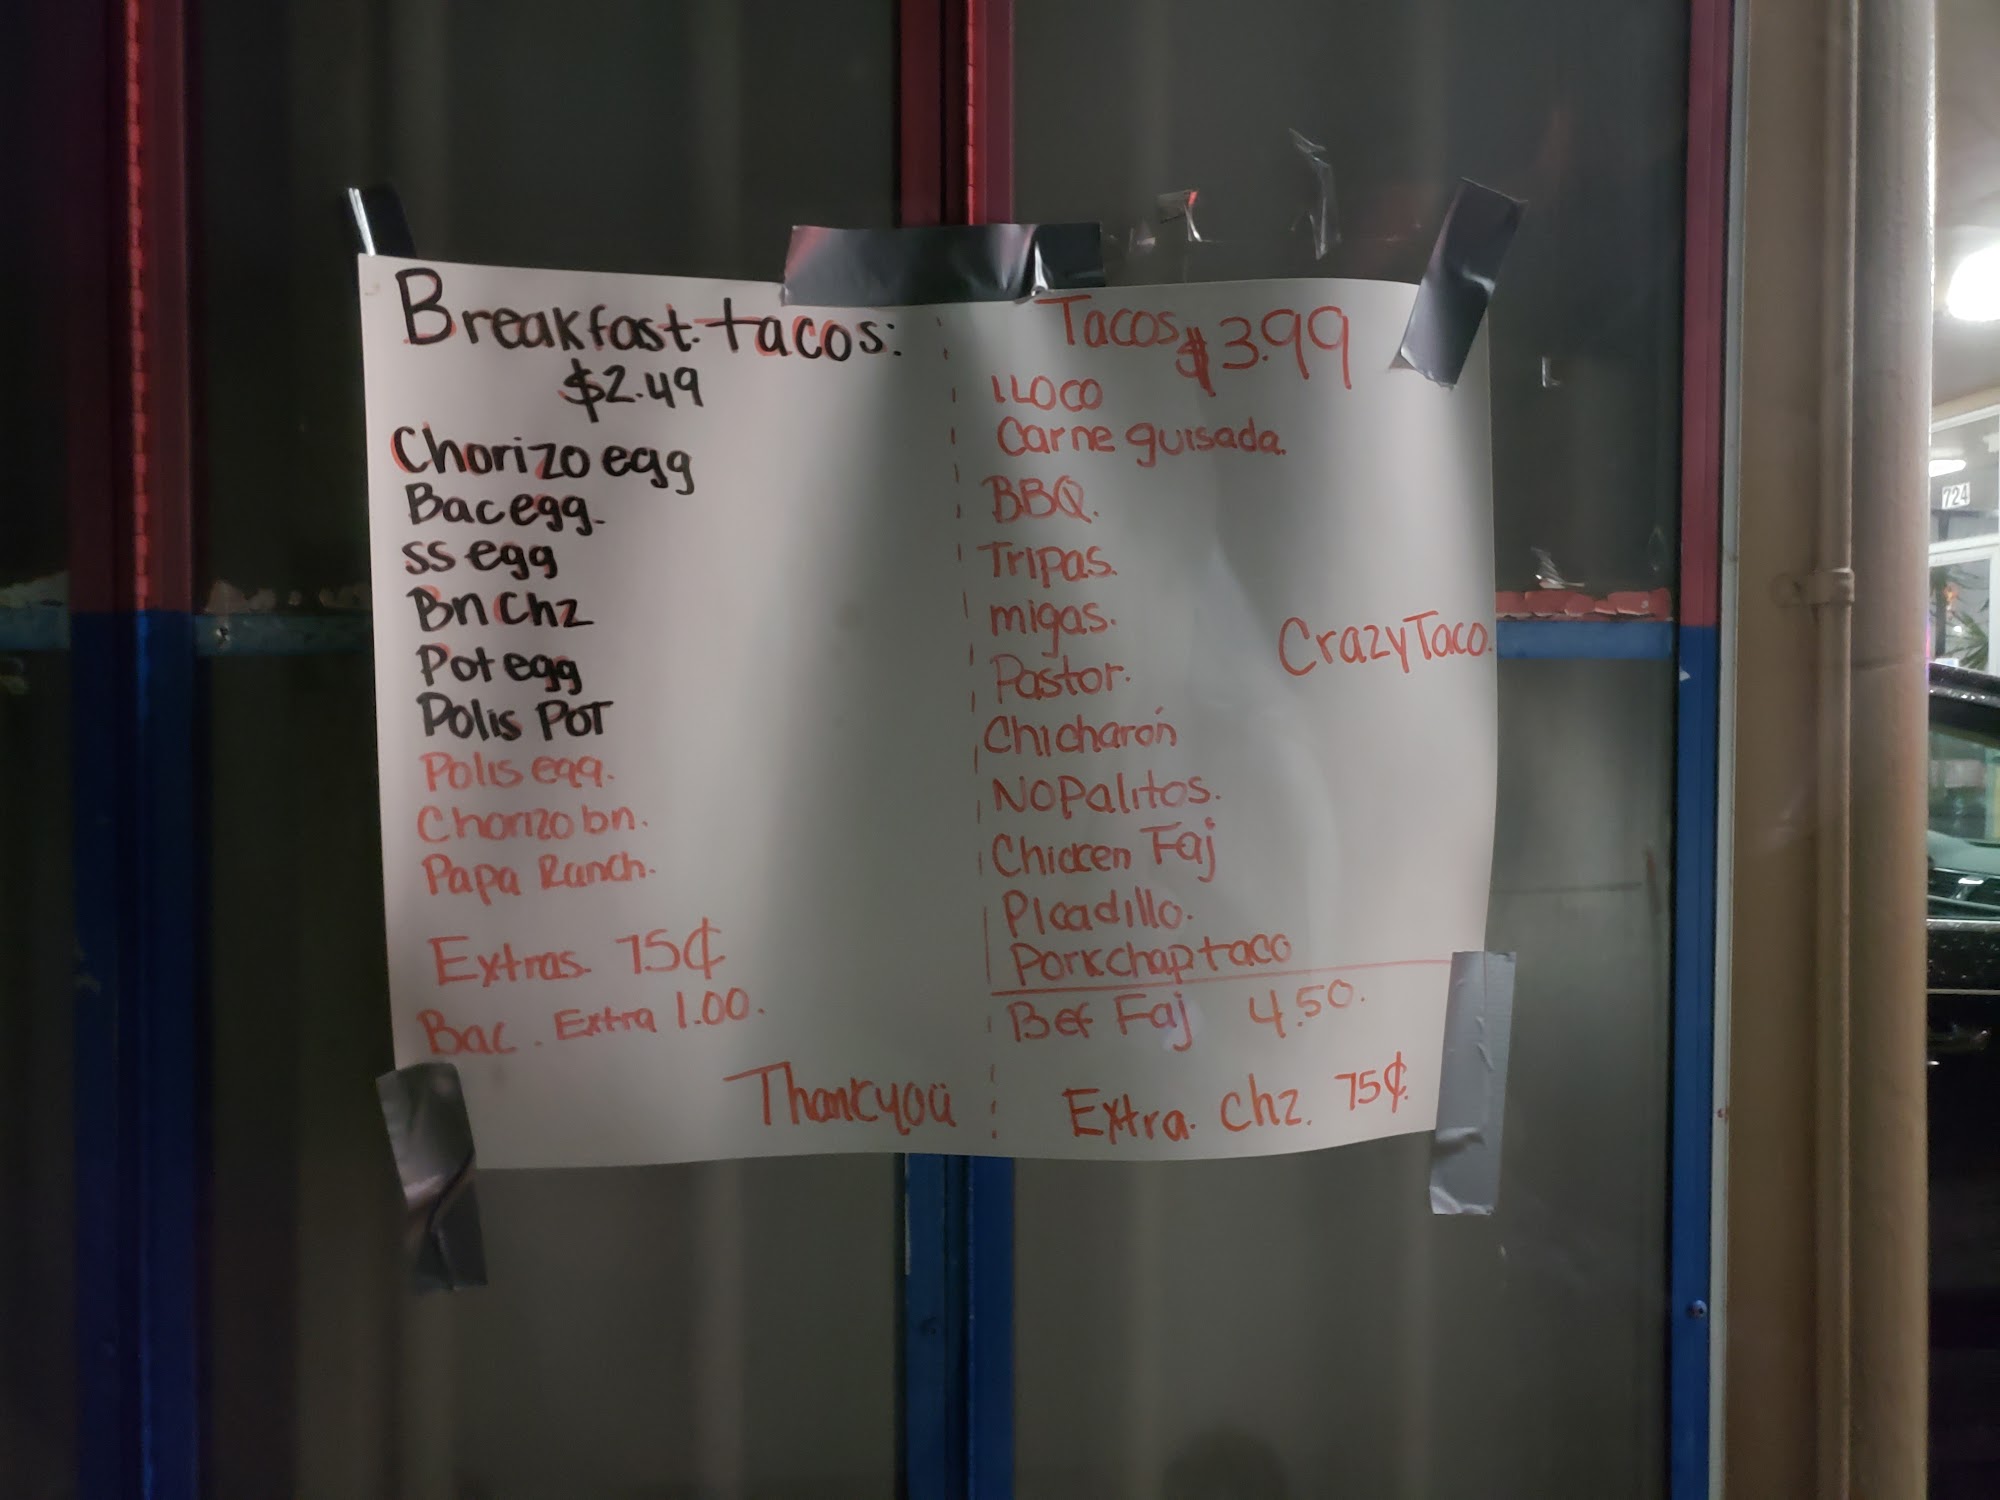 Breakfast tacos:
$2.49
Chorizo egg
Bac egg.
SS egg
Bn Chz
Pot egg
Polis POT
Polis egg.
Chorizo bn.
Papa Ranch.
Extras. 75¢
Bac. Extra 1.00.
Thank you
Tacos $3.99
1 LOCO
Carne guisada.
BBQ.
Tripas.
migas.
Pastor.
Chicharón
Nopalitos.
Chicken Faj
Picadillo.
Porkchap taco
Bef Faj 4.50.
Extra. Chz. 75¢.
Crazy Taco.
724